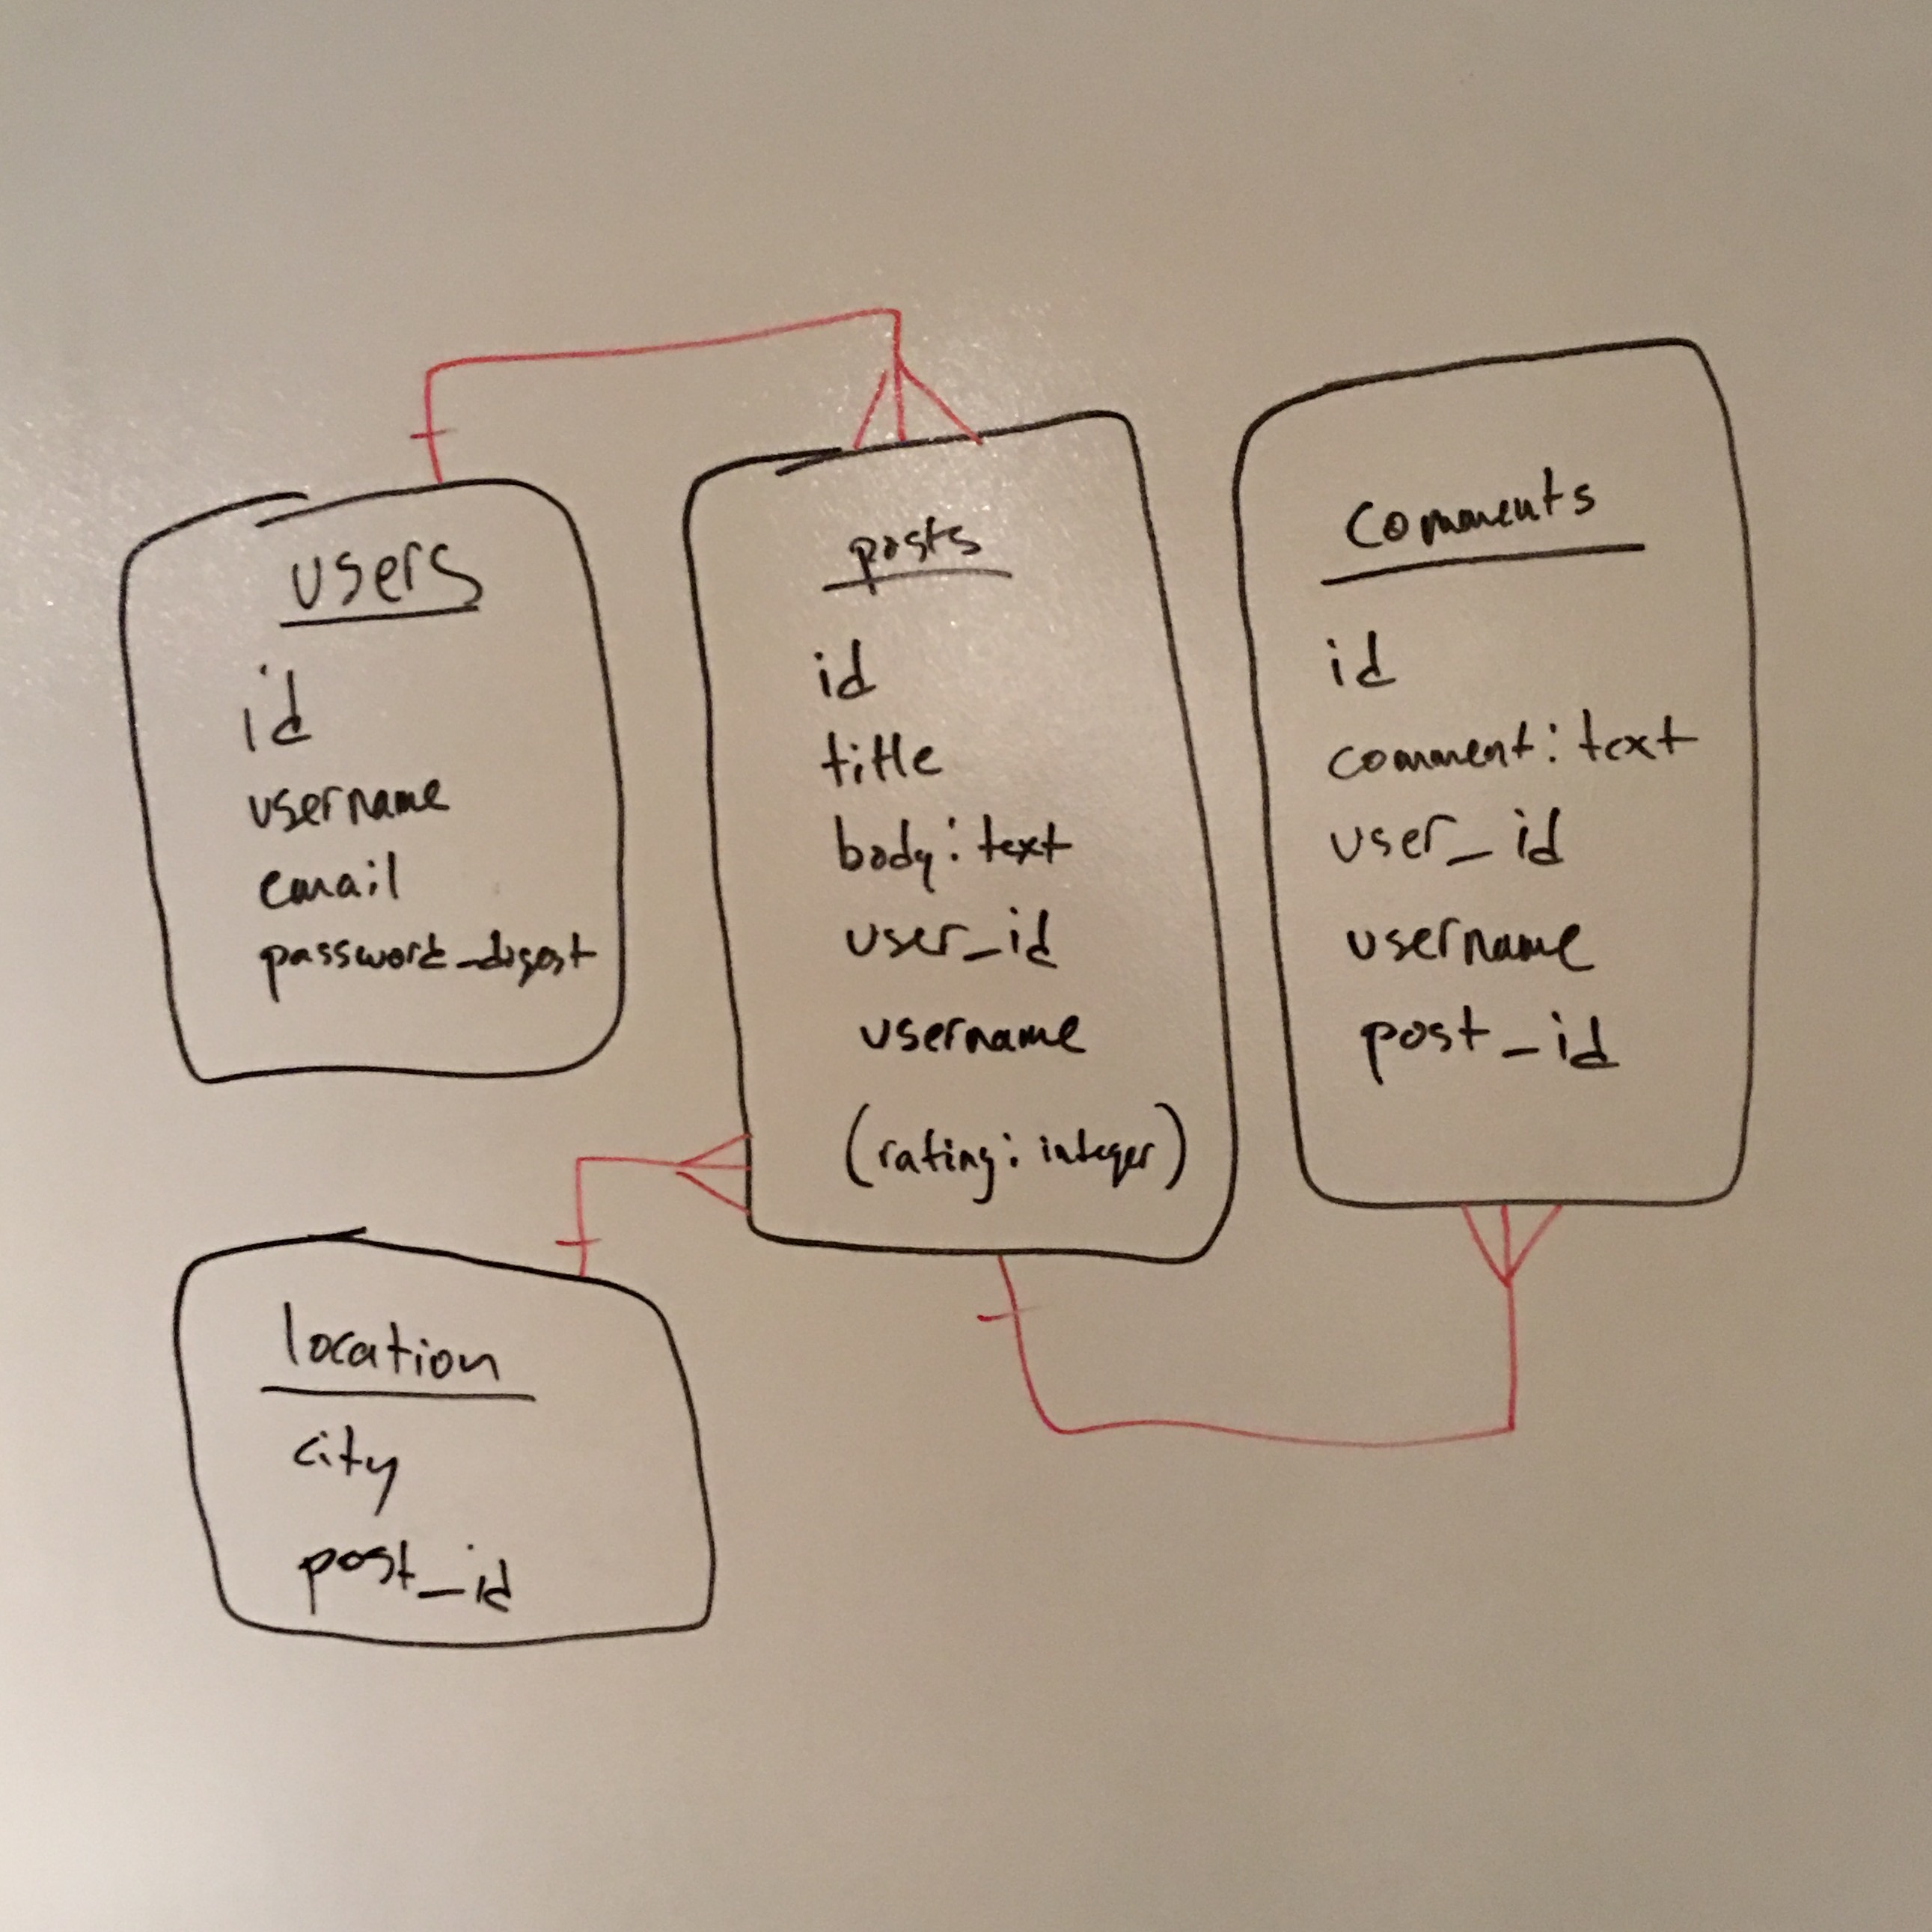 users
id
username
email
password_digest
posts
id
title
body: text
user_id
username
(rating: integer)
comments
id
comment: text
user_id
username
post_id
location
city
post_id